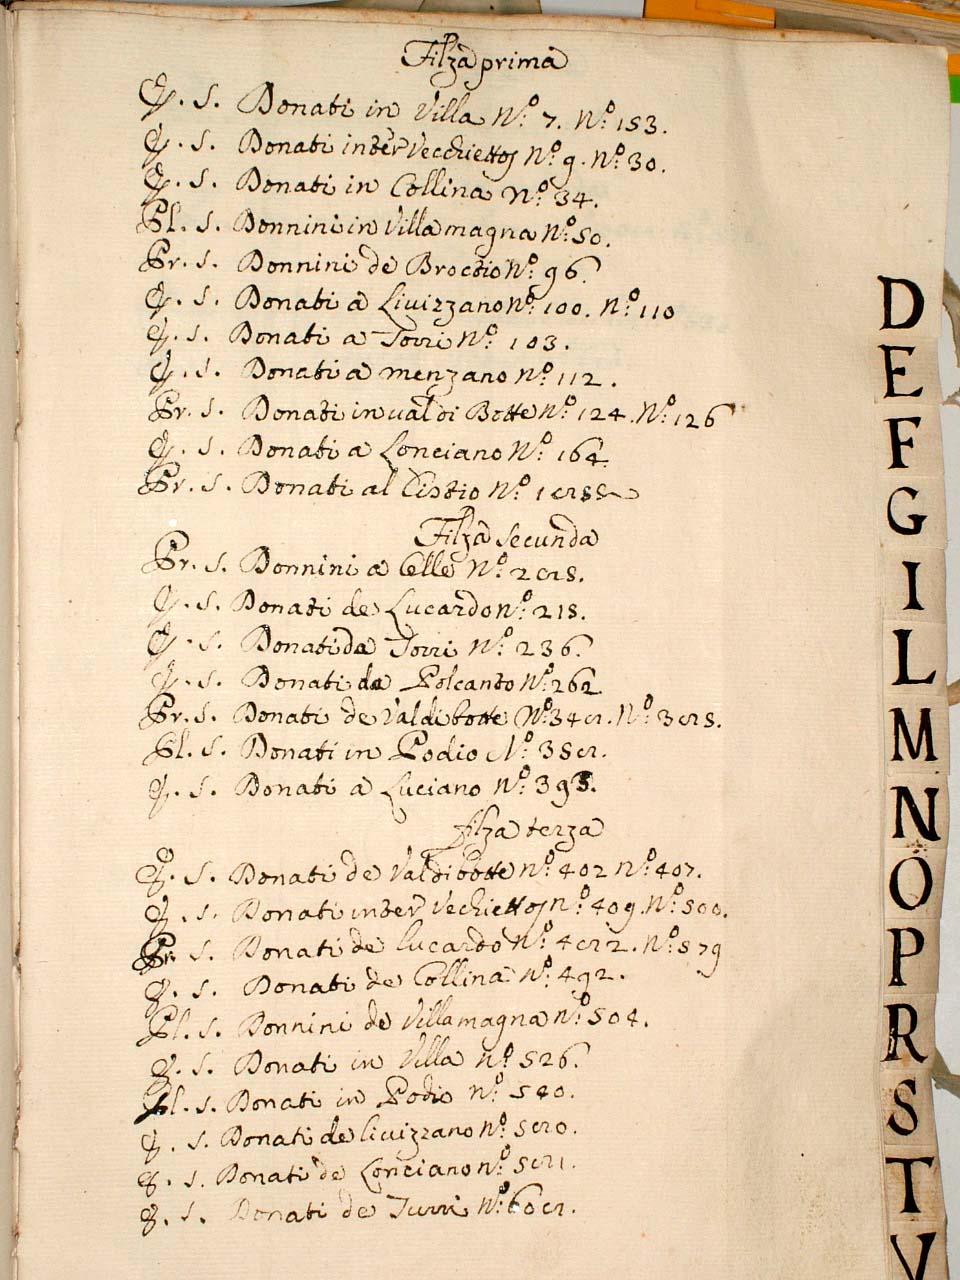 Filza prima
E. S. Donati in Villa N.º 7. N.º 153.
E. S. Donati inter Vecchiettos N.º 9. N.º 30.
E. S. Donati in Collina N.º 34.
Pl. S. Donnini in Villamagna N.º 50.
Pr. S. Donnini de Broctio N.º 96.
E. S. Donati a Livizzano N.º 100. N.º 110
E. S. Donati a Torri N.º 103.
E. S. Donati a menzano N.º 112.
Pr. S. Donati in val di Botte N.º 124. N.º 126
E. S. Donati a Lonciano N.º 164.
Pr. S. Donati al Cistio N.º
Filza secunda
Pr. S. Donnini a Celle N.º 285.
E. S. Donati de Lucardo N.º 215.
E. S. Donati da Torri N.º 236.
E. S. Donati da Polcanto N.º 262
Pr. S. Donati de Valdibotte N.º 348. N.º 385.
Pl. S. Donati in Podio N.º 358.
E. S. Donati a Luciano N.º 393.
filza terza
E. S. Donati de Valdibotte N.º 402 N.º 407.
E. S. Donati inter Vechiettos N.º 409. N.º 500.
Pr. S. Donati de Lucardo N.º 482. N.º 579
E. S. Donati de Collina N.º 492.
Pl. S. Donnini de Villamagna N.º 504.
E. S. Donati in Villa N.º 526.
Pl. S. Donati in Podio N.º 540.
E. S. Donati de livizzano N.º 580.
E. S. Donati de Lonciano N.º 581.
E. S. Donati de Turri N.º 608.
D
E
F
G
I
L
M
N
O
P
R
S
T
V